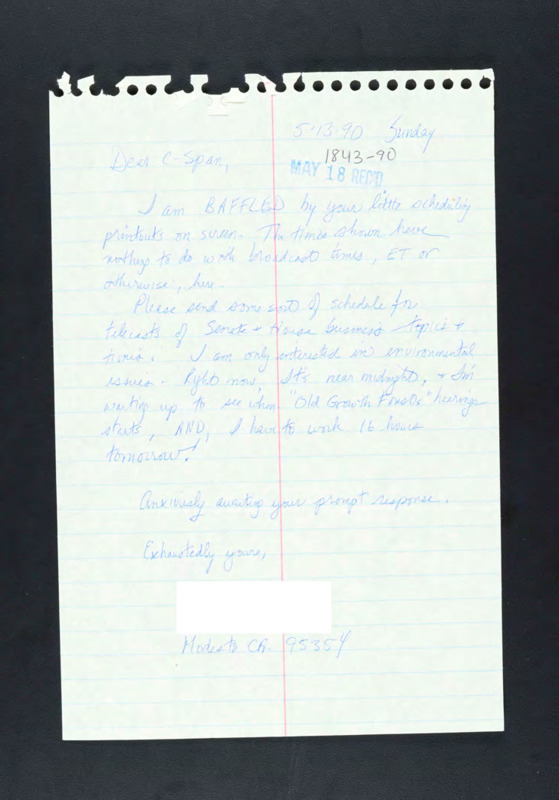 5-13-90 Sunday
1843-90
Dear C-Span,
MAY 18 REC'D
I am BAFFLED by your little scheduling
printouts on screen. The times shown have
nothing to do with broadcast times, ET or
otherwise, here.
Please send some sort of schedule for
telecasts of Senate + House business topics +
times. I am only interested in environmental
issues. Right now, it's near midnight, + I'm
waiting up to see when "Old Growth Forests" hearings
starts, AND, I have to work 16 hours
tomorrow!
Anxiously awaiting your prompt response.
Exhaustedly yours,
Modesto CA. 95354